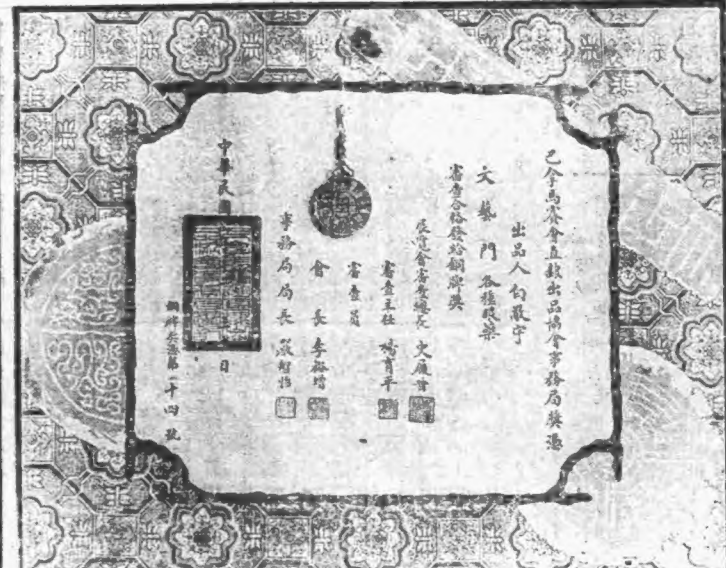 巴拿馬賽會直隸出品協會事務局獎憑
出品人白敬宇
文藝門 各種眼藥
審查合格發給銅牌獎
展覽會審查總長 史履晉
審查主任
審查員
會長 李裕增
事務局局長 嚴智怡
中華民國 日
銅牌 第一十四號